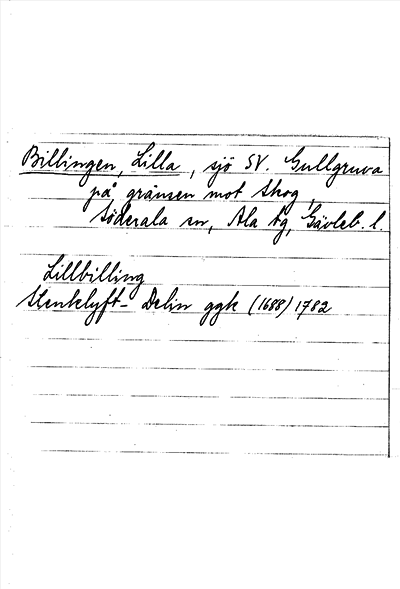 Billingen, Lilla, sjö SV. Gullgruva
på gränsen mot Skog,
Söderala sn, Ala tg, Gävleb. l.
Lillbilling
Stenklyft- Delin ggk (1688) 1782